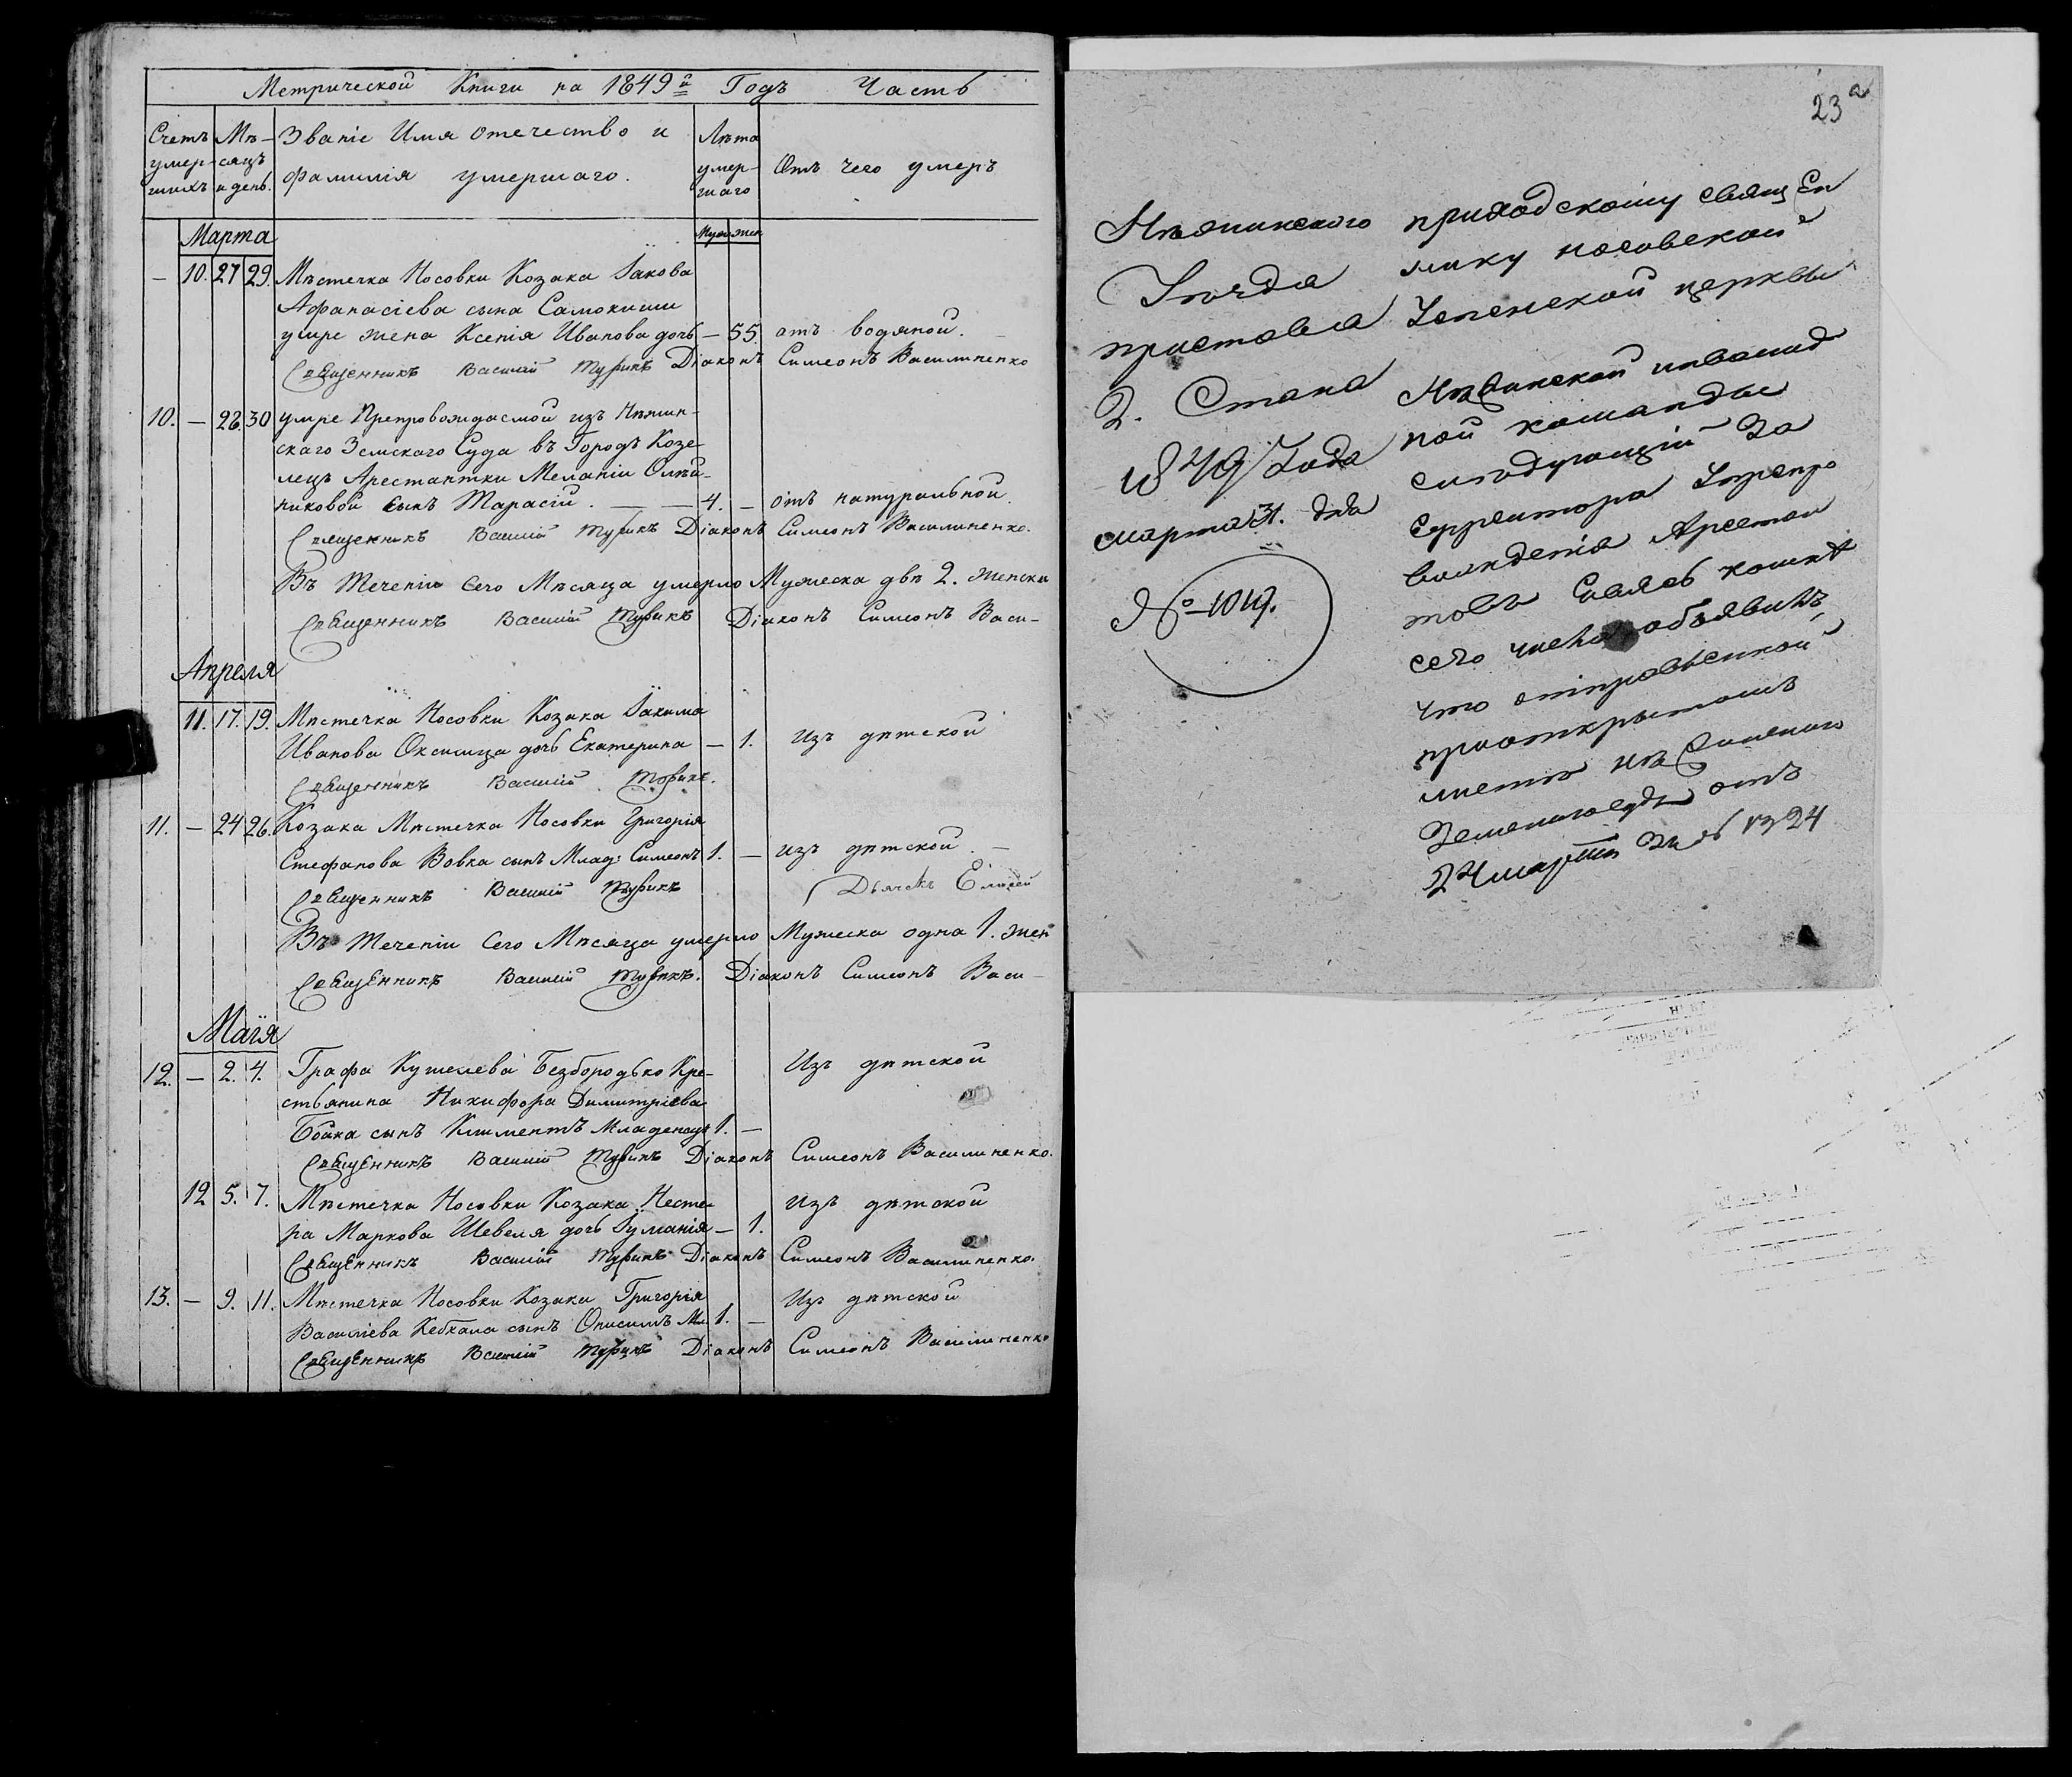 Метрической Книги на 1849й Годъ Часть
Счетъ умершихъ
Мѣсяцъ и день.
Званіе Имя отечество и
фамилія умершаго.
Лѣта умершаго
Отъ чего умеръ
Марта
Муж жен
— 10. 27 29. Мѣстечка Носовки Козака Іакова
Афанасіева сына Самокиши
умре жена Ксенія Иванова дочь — 55. отъ водяной.
Священникъ Василій Діаконъ Симеонъ Василиненко
10. — 28. 30 умре Препровождаемой изъ Нѣжин-
скаго Земскаго Суда въ Городъ Козе-
лецъ Арестантки Меланіи Олѣй-
никовой сынъ Тарасій. — — 4. — отъ натуральной.
Священникъ Василій Діаконъ Симеонъ Василиненко.
Въ теченіи Сего Мѣсяца умерло Мужеска двѣ 2. женска
Священникъ Василій Діаконъ Симеонъ Васи-
Апреля
11. 17. 19. Мѣстечка Носовки Козака Іакима
Иванова дочь Екатерина — 1. Изъ дѣтской
Священникъ Василій
11. — 24 26. Козака Мѣстечка Носовки Григорія
Стефанова Вовка сынъ Млад: Симеонъ 1. — изъ дѣтской. —
Священникъ Василій Дьячекъ Елисей
Въ теченіи Сего Мѣсяца умерло Мужеска одна 1. жен
Священникъ Василій Діаконъ Симеонъ Васи-
Маія
12. — 2. 4. Графа Кушелева Безбородько Кре- Изъ дѣтской
стьянина Никифора Димитріева
сынъ Климентъ Младенецъ 1. —
Священникъ Василій Діаконъ Симеонъ Василиненко.
12 5. 7. Мѣстечка Носовки Козака Несте- изъ дѣтской
ра Маркова Шевеля дочь Іуліанія — 1.
Священникъ Василій Діаконъ Симеонъ Василиненко.
13. — 9. 11. Мѣстечка Носовки Козака Григорія Изъ дѣтской
Василіева сынъ Онисимъ Мл 1. —
Священникъ Василій Діаконъ Симеонъ Василиненко
23а
Нѣжинского
Уѣзда
пристава
2. Стана
1849 Года
марта 31. дня
№ 1019.
приходскому свящѣн
нику носовской
Успенской церквы
Нѣжинской инвалид
ной команды
слѣдующій За
Ефрейтора Упрепро
вождения Арестан
товъ
сего числа объявилъ,
что отправленной
приоткрытомъ
листѣ
отъ
24 марта за № 1324